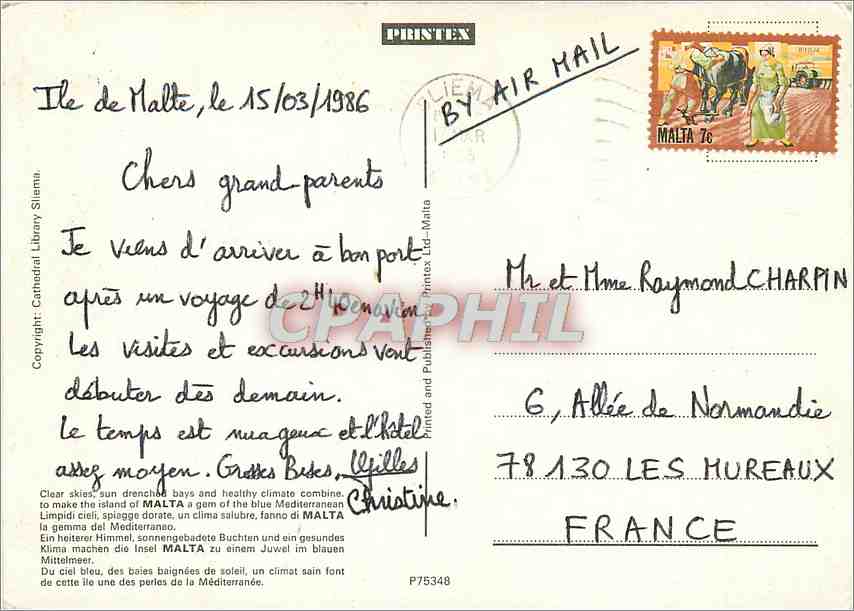 PRINTEX
Ile de Malte, le 15/03/1986
Chers grand-parents
Je viens d'arriver à bon port
après un voyage de 2H40 en avion
Les visites et excursions vont
débuter dès demain.
Le temps est nuageux et l'hôtel
assez moyen. Grosses Bises.
Gilles
Christine.
Clear skies, sun drenched bays and healthy climate combine.
to make the island of MALTA a gem of the blue Mediterranean
Limpidi cieli, spiagge dorate, un clima salubre, fanno di MALTA
la gemma del Mediterraneo.
Ein heiterer Himmel, sonnengebadete Buchten und ein gesundes
Klima machen die Insel MALTA zu einem Juwel im blauen
Mittelmeer.
Du ciel bleu, des baies baignées de soleil, un climat sain font
de cette île une des perles de la Méditerranée.
Copyright: Cathedral Library Sliema.
Printed and Published by Printex Ltd-Malta
P75348
CPAPHIL
SLIEMA
MAR
BY AIR MAIL
MALTA 7c
Mr et Mme Raymond CHARPIN
6, Allée de Normandie
78130 LES MUREAUX
FRANCE